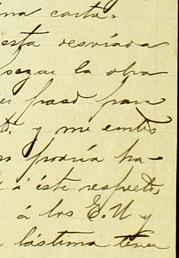 una carta.
esta resviada
pezar la obra
frasó para
y me entes
podría ha-
á éste respecto,
á los E. U y
lástima tener